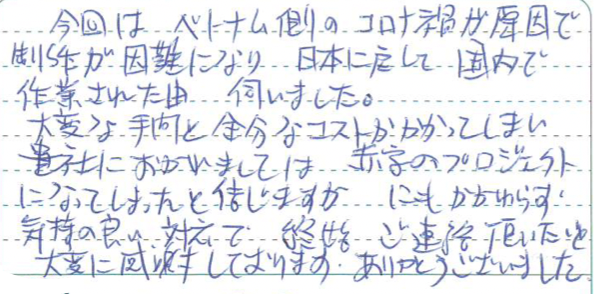 今回は ベトナム側の コロナ禍が原因で
制作が困難になり 日本に戻して 国内で
作業された由 伺いました。
大変な手間と余分なコストがかかってしまい
貴社におかれましては 赤字のプロジェクト
になってしまったと信じますが にもかかわらず
気持の良い 対応で 終始 ご連絡 頂いた
大変に感 しております。ありがとうございました。